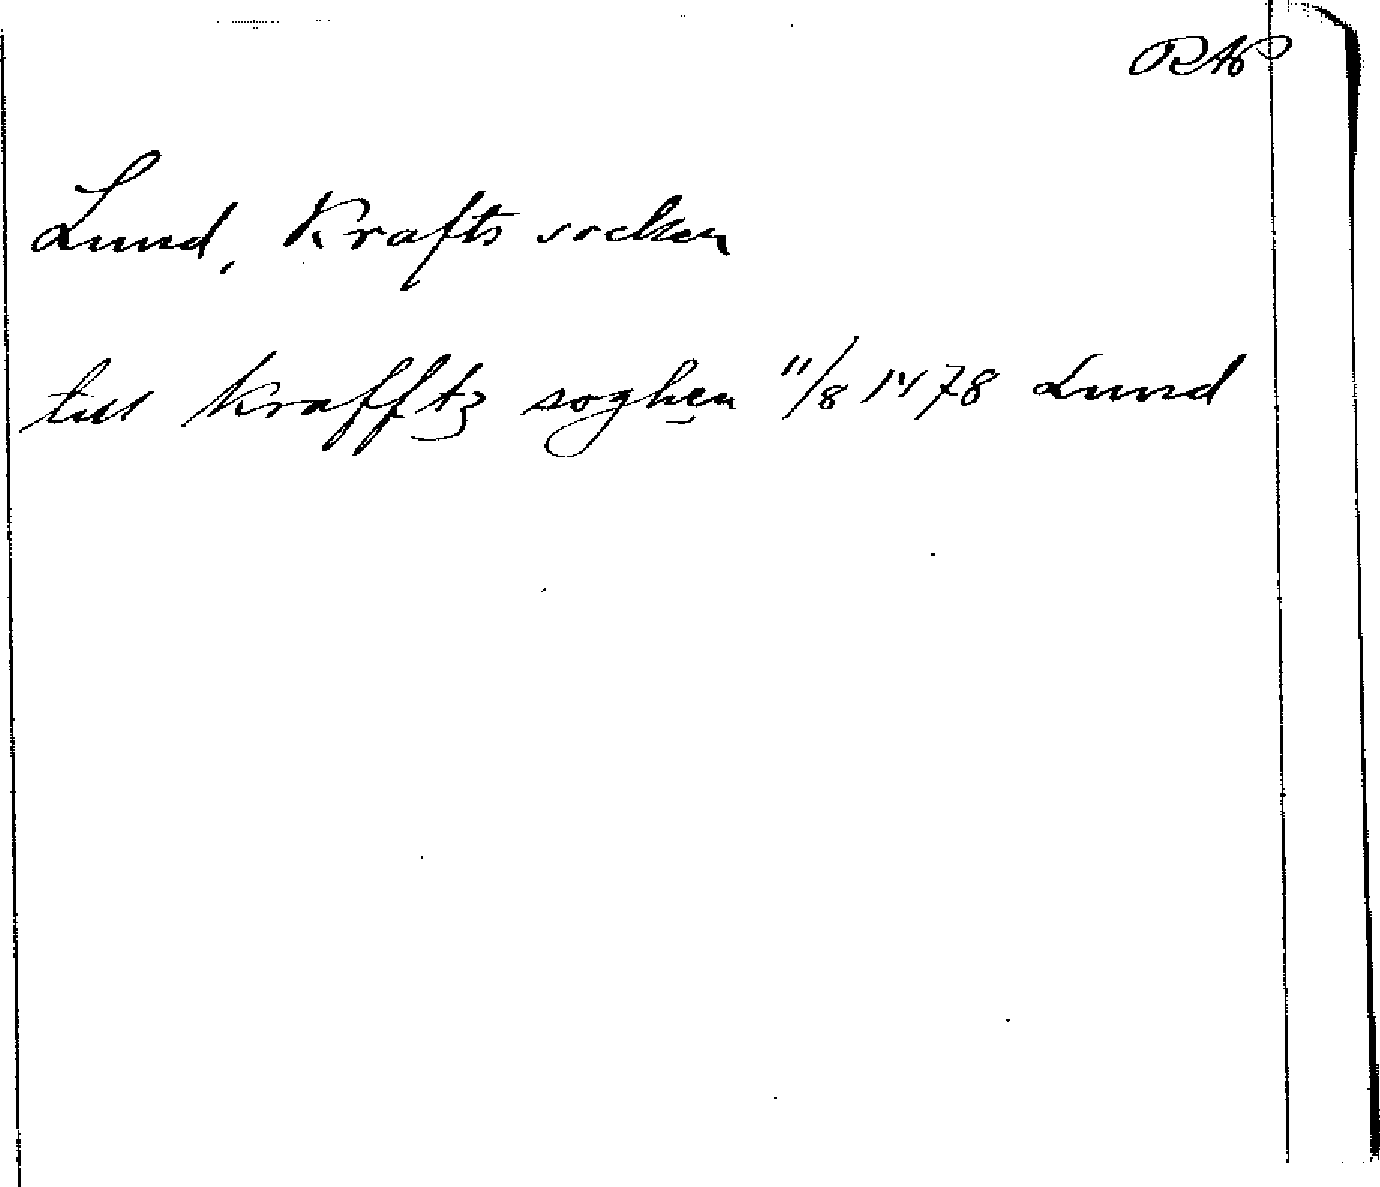 RAP
Lund, Krafts socken
till krafftz soghen 11/8 1478 Lund